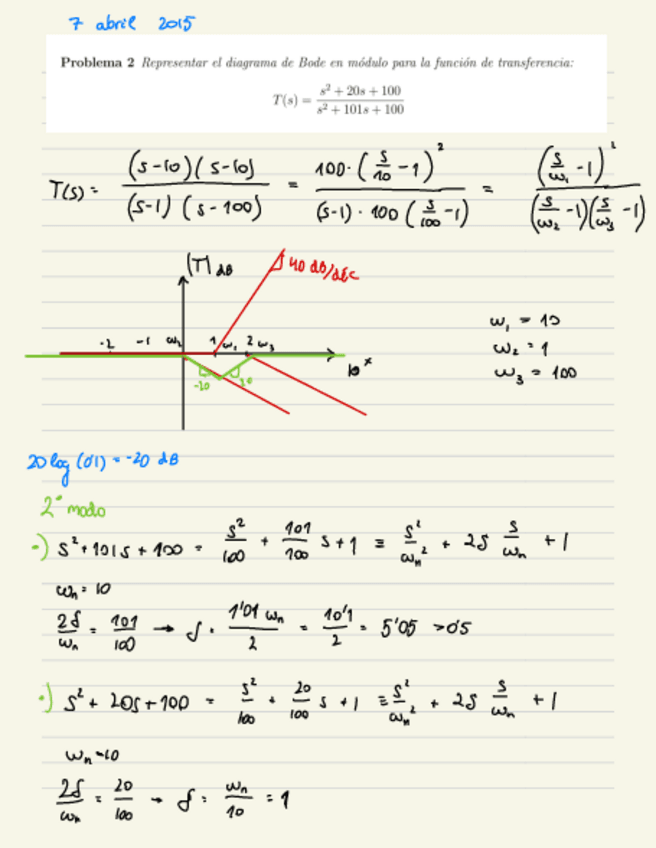 7 abril 2015
Problema 2 Representar el diagrama de Bode en módulo para la función de transferencia:
T(s) = (s² + 20s + 100) / (s² + 101s + 100)
T(s) = (s-10)(s-10) / (s-1)(s-100) = 100·(s/10 -1)² / (s-1)·100(s/100 -1) = (s/ω₁ -1)² / (s/ω₂ -1)(s/ω₃ -1)
|T|dB
40 dB/dec
-2 -1 ω₂ 1 ω₁ 2 ω₃
10^x
-20 20
ω₁ = 10
ω₂ = 1
ω₃ = 100
20 log (0'1) = -20 dB
2º modo
·) s² + 101s + 100 = s²/100 + 101/100 s + 1 ≡ s²/ωn² + 2δ s/ωn + 1
ωn = 10
2δ/ωn = 101/100 → δ = 1'01 ωn/2 = 10'1/2 = 5'05 >0'5
·) s² + 20s + 100 = s²/100 + 20/100 s + 1 ≡ s²/ωn² + 2δ s/ωn + 1
ωn = 10
2δ/ωn = 20/100 → δ = ωn/10 = 1